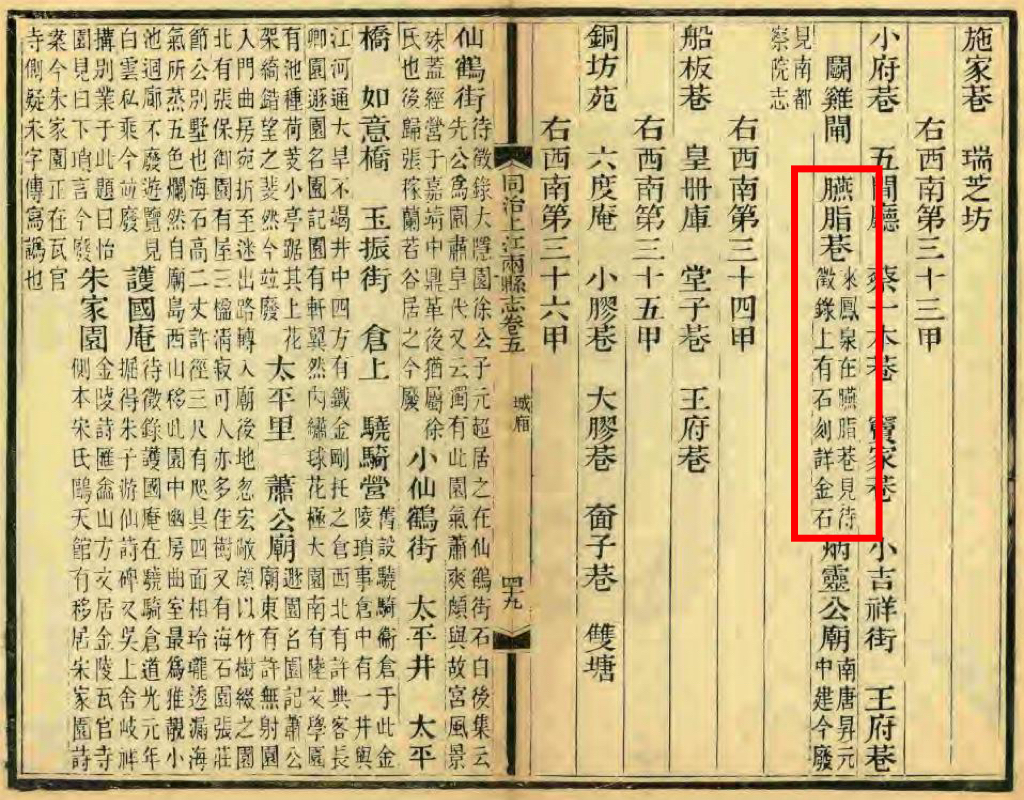 施家巷　瑞芝坊
右西南第三十三甲
小府巷　五間廳　蔡一本巷　竇家巷　小吉祥街　王府巷
鬭雞閘　臙脂巷
來鳳泉在臙脂巷見待
徵錄上有石刻詳金石
炳靈公廟
南唐昇元
中建今廢
見南都
察院志
右西南第三十四甲
船板巷　皇冊庫　堂子巷　王府巷
右西南第三十五甲
銅坊苑　六度庵　小膠巷　大膠巷　奤子巷　雙塘
右西南第三十六甲
同治上江兩縣志卷五　城廂　四九
仙鶴街
待徵錄大隱園徐公子元超居之在仙鶴街石白後集云
先公為園肅皇代又云獨有此園氣蕭爽頗與故宮風景
殊蓋經營于嘉靖中鼎革後猶屬徐
氏也後歸張稼蘭若谷居之今廢
小仙鶴街　太平井　太平
橋　如意橋　玉振街　倉上　驍騎營
舊設驍騎衞倉于此金
陵瑣事倉中有一井與
江河通大旱不竭井中四方有鐵金剛托之倉西北有許典客長
卿園遯園名園記園有軒翼然內繡球花極大園南有陸文學園
有池種荷芰小亭踞其上花
架綺錯望之菱然今竝廢
太平里　蕭公廟
遯園名園記蕭公
廟東有許無射園
入門曲房宛折至迷出路轉入廟後地忽宏敞頗以竹樹綴之園
北有張保御園有屋三楹清寂可人亦多佳樹又有海石園張莊
節公別墅也海石高二丈許徑三尺有爬具四面相玲瓏透漏海
氣所蒸五色爛然自廟島西山移此園中幽房曲室最為雅靚小
池迴廊不廢遊覽見
白雲私乘今竝廢
護國庵
待徵錄護國庵在驍騎倉道光元年
堀得朱子游仙詩碑又吳上舍岐祥
搆別業于此題曰怡
園見白下瑣言今廢
朱家園
金陵詩匯盦山方文居金陵瓦官寺
側本宋氏鷗天館有移居宋家園詩
案今朱家園正在瓦官
寺側疑宋字傳寫譌也